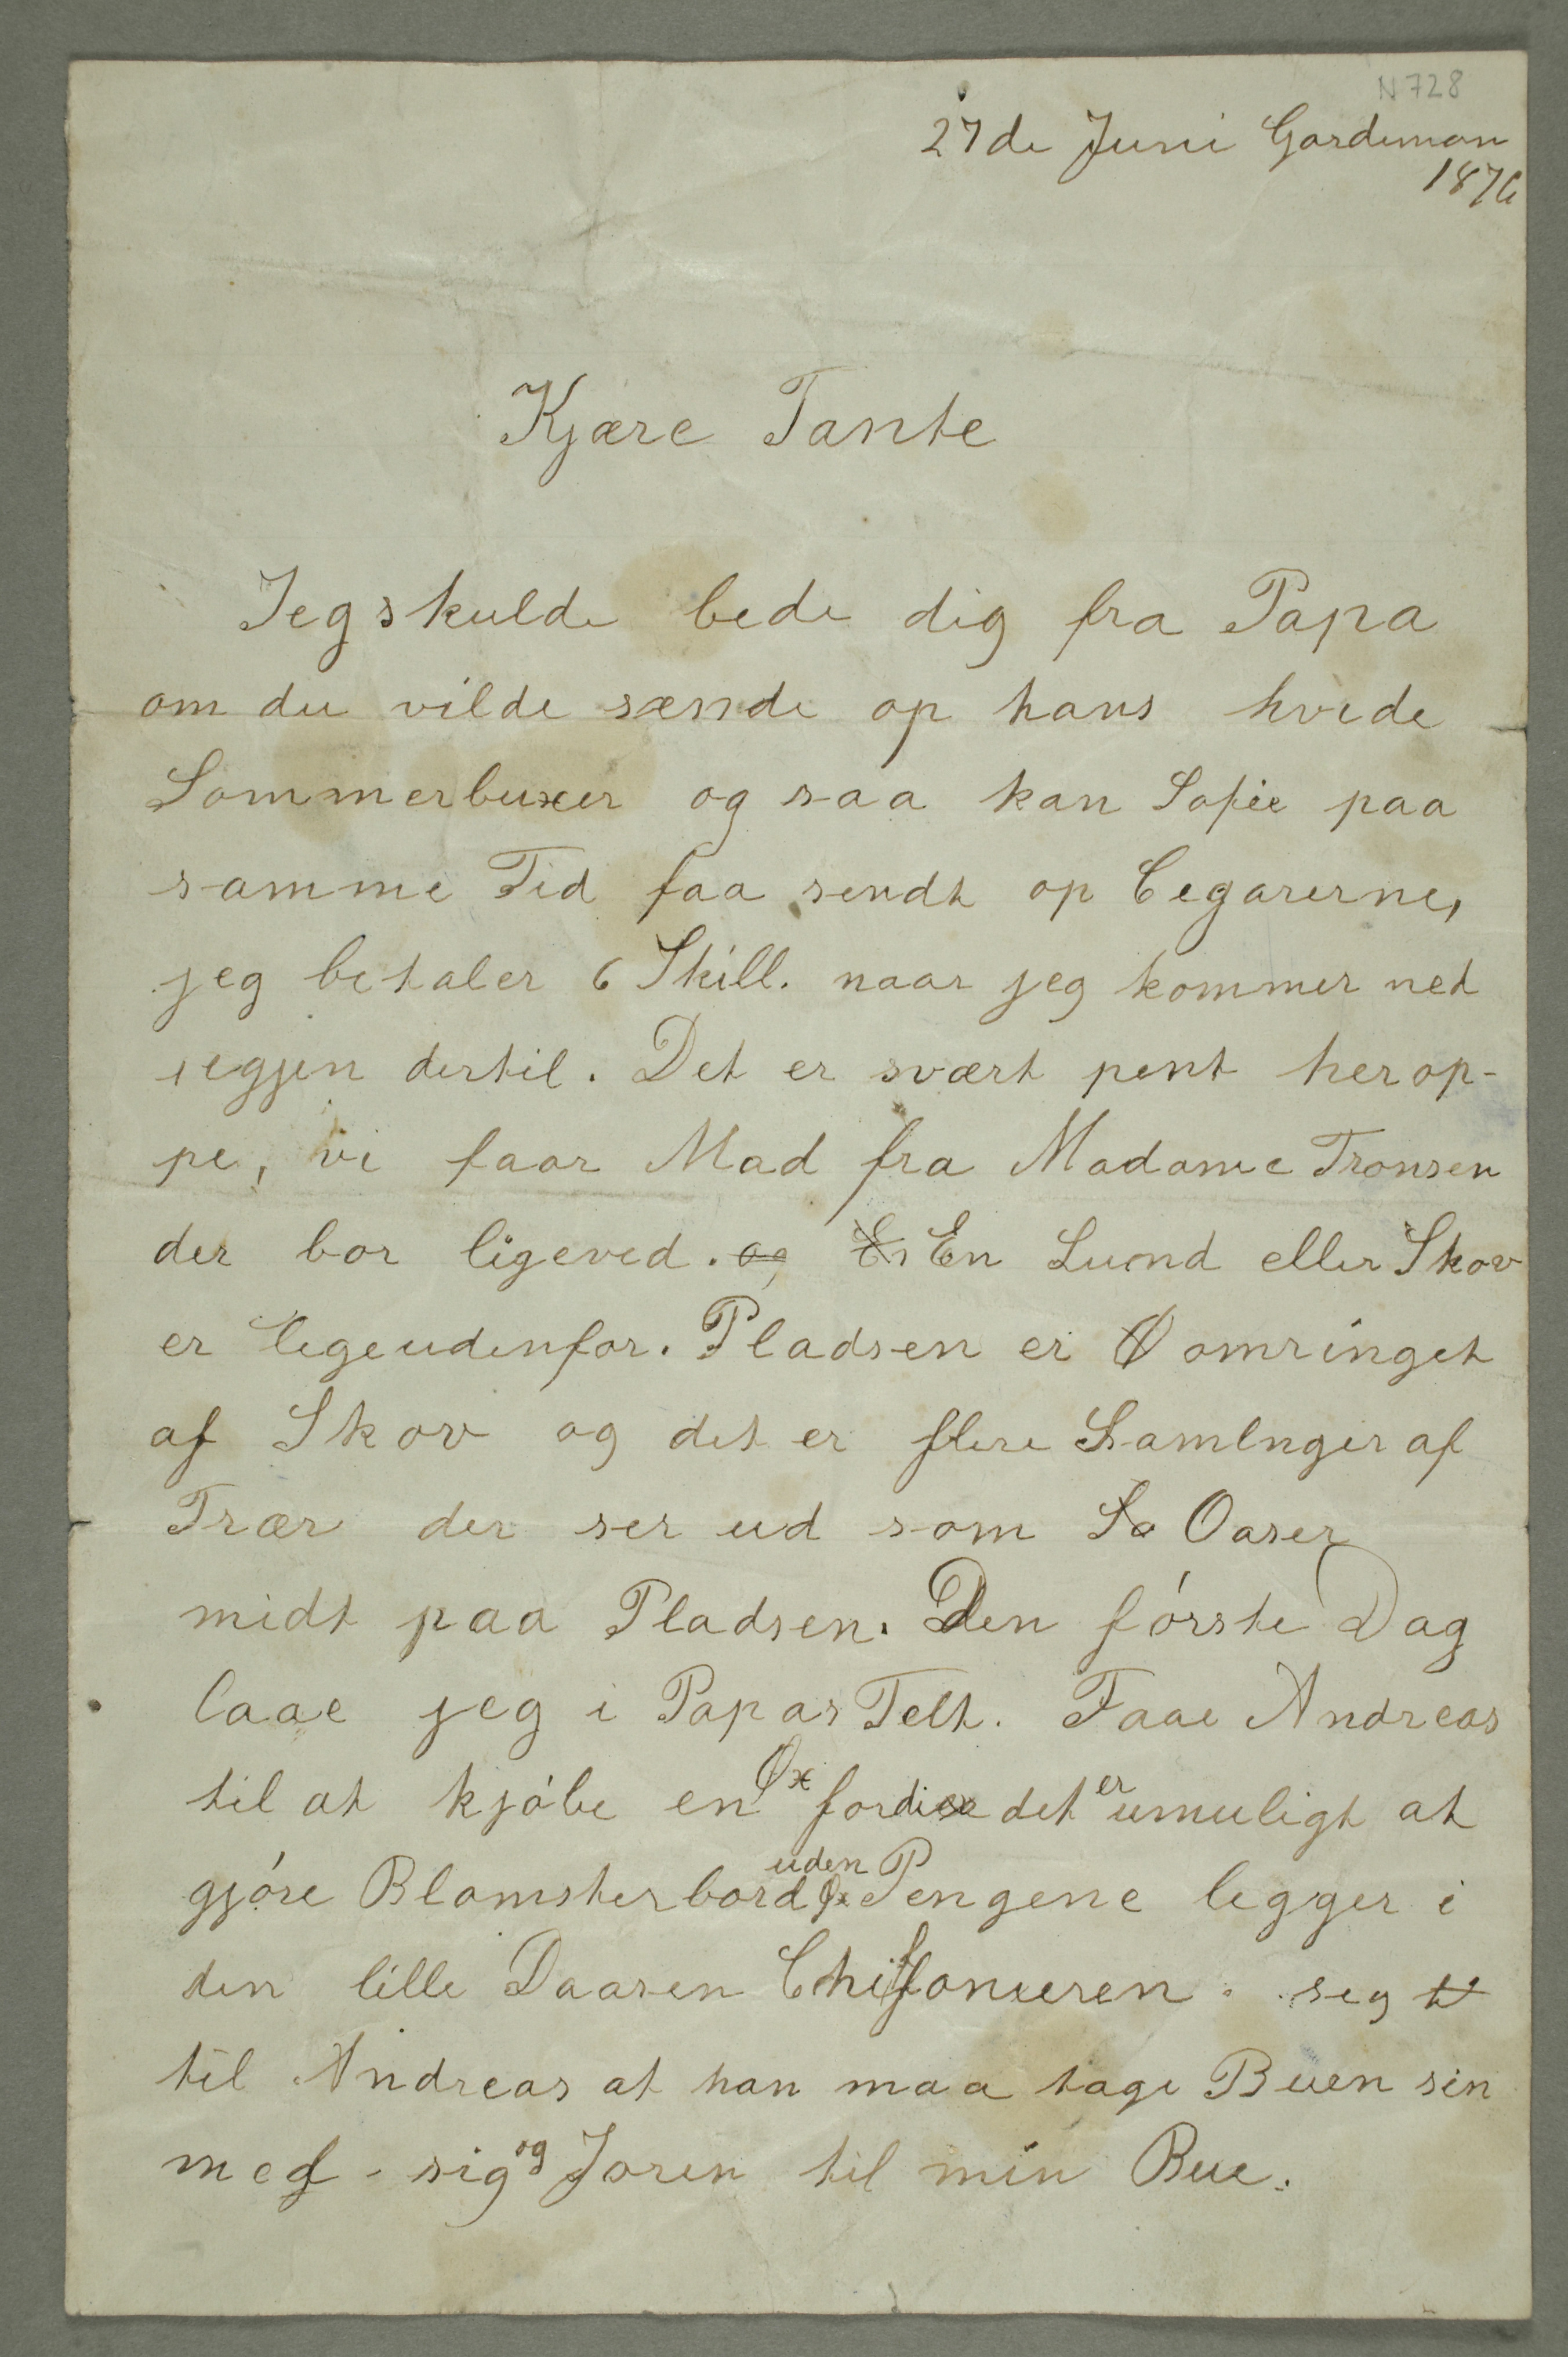 N 728
27de Juni Gardemon
1876
Kjære Tante
Jeg skulde bede dig fra Papa
om du vilde sænde op hans hvide
Sommerbuxer og saa kan Sofie paa
samme Tid faa sendt op Cegarerne,
jeg betaler 6 Skill. naar jeg kommer ned
iegjen dertil. Det er svært pent herop-
pe, vi faar Mad fra Madame Tronsen
der bor ligeved. og En En Lund eller Skov
er legeudenfor. Pladsen er O omringet
af Skov og det er flere Samlnger af
Trær der ser ud som So Oaser
midt paa Pladsen. Den første Dag
laae jeg i Papas Telt. Faae Andreas
til at kjøbe en Øx fordi det er umuligt at
gjøre Blomsterbord uden Øx Pengene legger i
den lille Daasen Chiffonieren. seg
til Andreas at han maa tage Buen sin
med sig og Joren til min Bue.